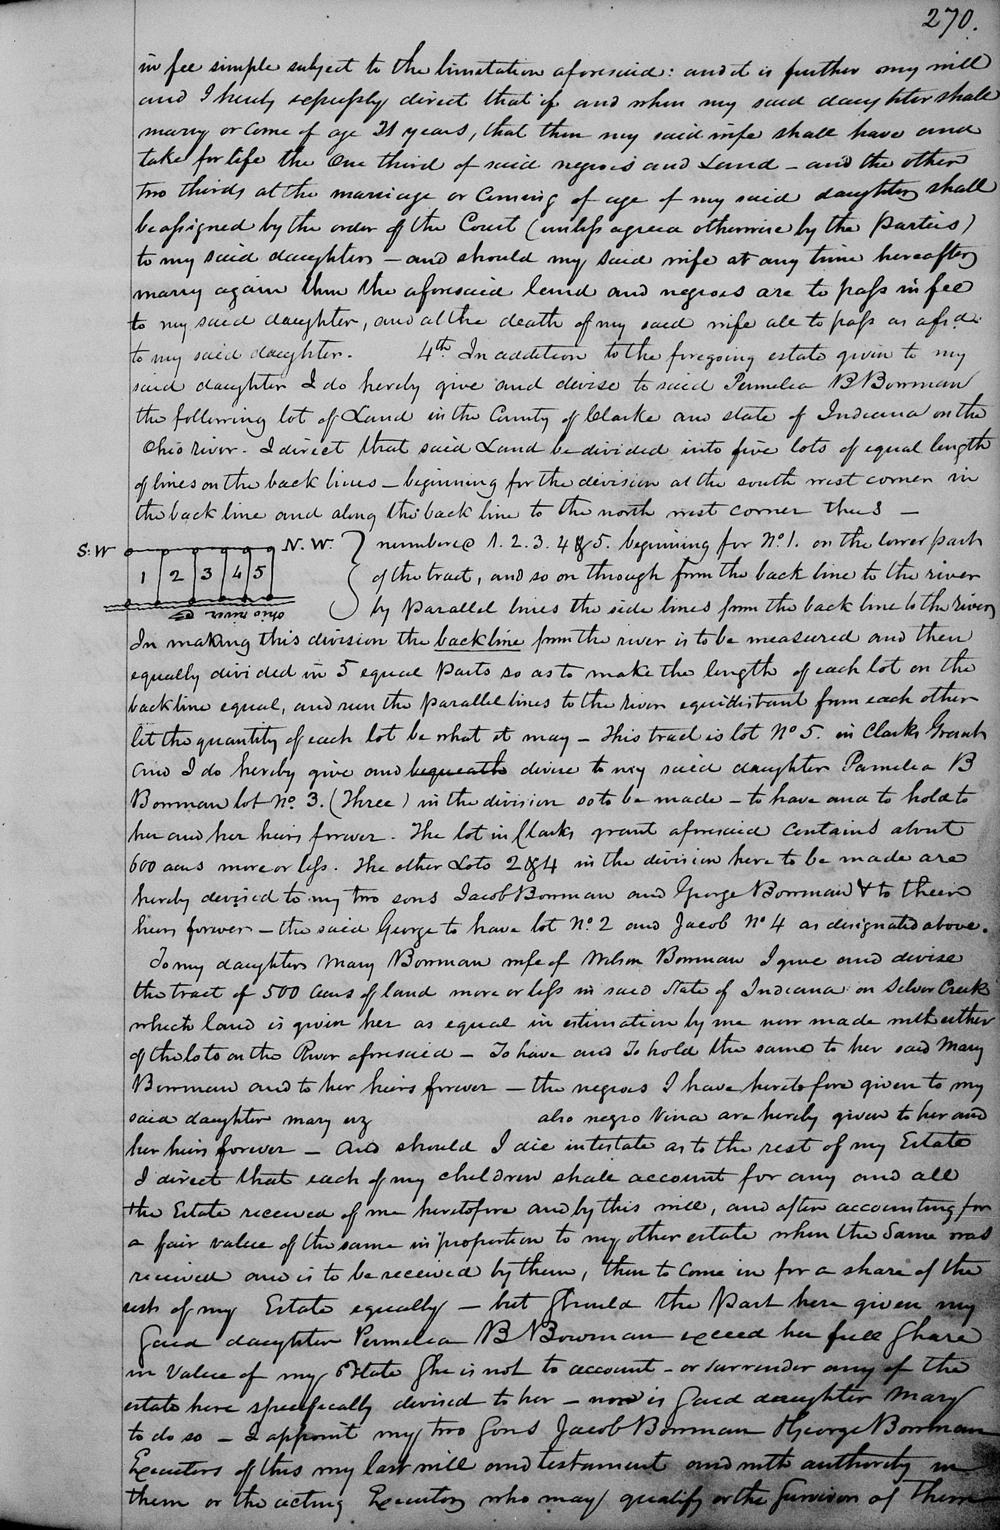 270.
in fee simple subject to the limitation aforesaid: and it is further my will
and I hereby expressly direct that if and when my said daughter shall
marry or come of age 21 years, that then my said wife shall have and
take for life the One third of said negroes and Land – and the other
two thirds at the marriage or Coming of age of my said daughter shall
be assigned by the order of the Court (unless agreed otherwise by the Parties)
to my said daughter – and should my said wife at any time hereafter
marry again then the aforesaid land and negroes are to pass in fee
to my said daughter, and at the death of my said wife all to pass as afsd.
to my said daughter. 4th In addition to the foregoing estate given to my
said daughter I do hereby give and devise to said Permelia B Bowman
the following lot of Land in the County of Clarke and state of Indiana on the
Ohio river. I direct that said Land be divided into five lots of equal length
of lines on the back lines – beginning for the division at the south west corner in
the back line and along the back line to the north west corner thus –
S. W N. W. numbered 1. 2. 3. 4 & 5. beginning for No 1. on the lower part
1 2 3 4 5 of the tract, and so on through from the back line to the river
Ohio river by parallel lines the side lines from the back line to the river
In making this division the back line from the river is to be measured and then
equally divided in 5 equal Parts so as to make the length of each lot on the
back line equal, and run the parallel lines to the river equidistant from each other
let the quantity of each lot be what it may – This tract is lot No 5. in Clarks Grant
And I do hereby give and bequeath devise to my said daughter Pamelia B
Bowman lot No. 3. (Three) in the division so to be made – to have and to hold to
her and her heirs forever. The lot in Clarks grant aforesaid contains about
600 acres more or less. The other Lots 2 & 4 in the division here to be made are
hereby devised to my two sons Jacob Bowman and George Bowman & to their
heirs forever – the said George to have lot No. 2 and Jacob No 4 as designated above.
To my daughter Mary Bowman wife of Wilson Bowman I give and devise
the tract of 500 acres of land more or less in said State of Indiana on Silver Creek
which land is given her as equal in estimation by me now made with either
of the lots on the River aforesaid – To have and To hold the same to her said Mary
Bowman and to her heirs forever – the negroes I have heretofore given to my
said daughter mary viz also negro Vina are hereby given to her and
her heirs forever – And should I die intestate as to the rest of my Estate
I direct that each of my children shall account for any and all
the Estate received of me heretofore and by this will, and after accounting for
a fair value of the same in proportion to my other estate when the Same was
received and is to be received by them, then to Come in for a share of the
rest of my Estate equally – but should the Part here given my
said daughter Permelia B Bowman exceed her full share
in Value of my Estate she is not to account – or surrender any of the
estate here specifically devised to her – nor is said daughter Mary
to do so – I appoint my two sons Jacob Bowman & George Bowman
Executors of this my last will and testament and with authority in
them or the acting Executor who may qualify or the survivor of them